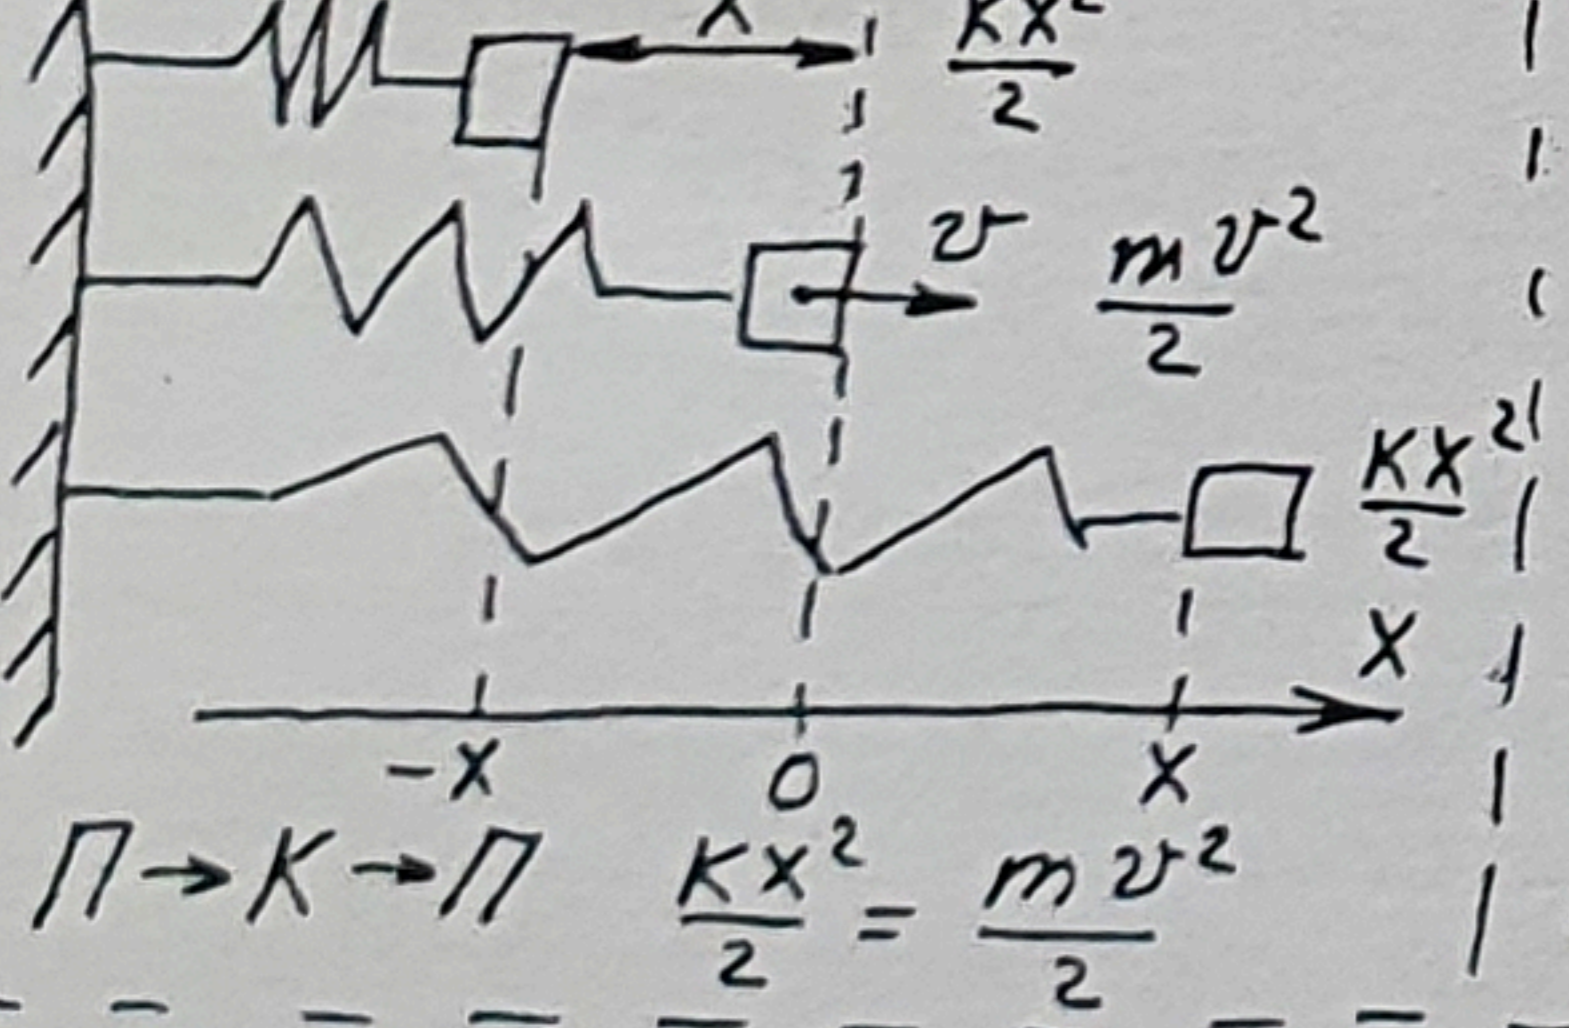 x kx²/2
v mv²/2
kx²/2
x
-x 0 x
П→К→П kx²/2 = mv²/2